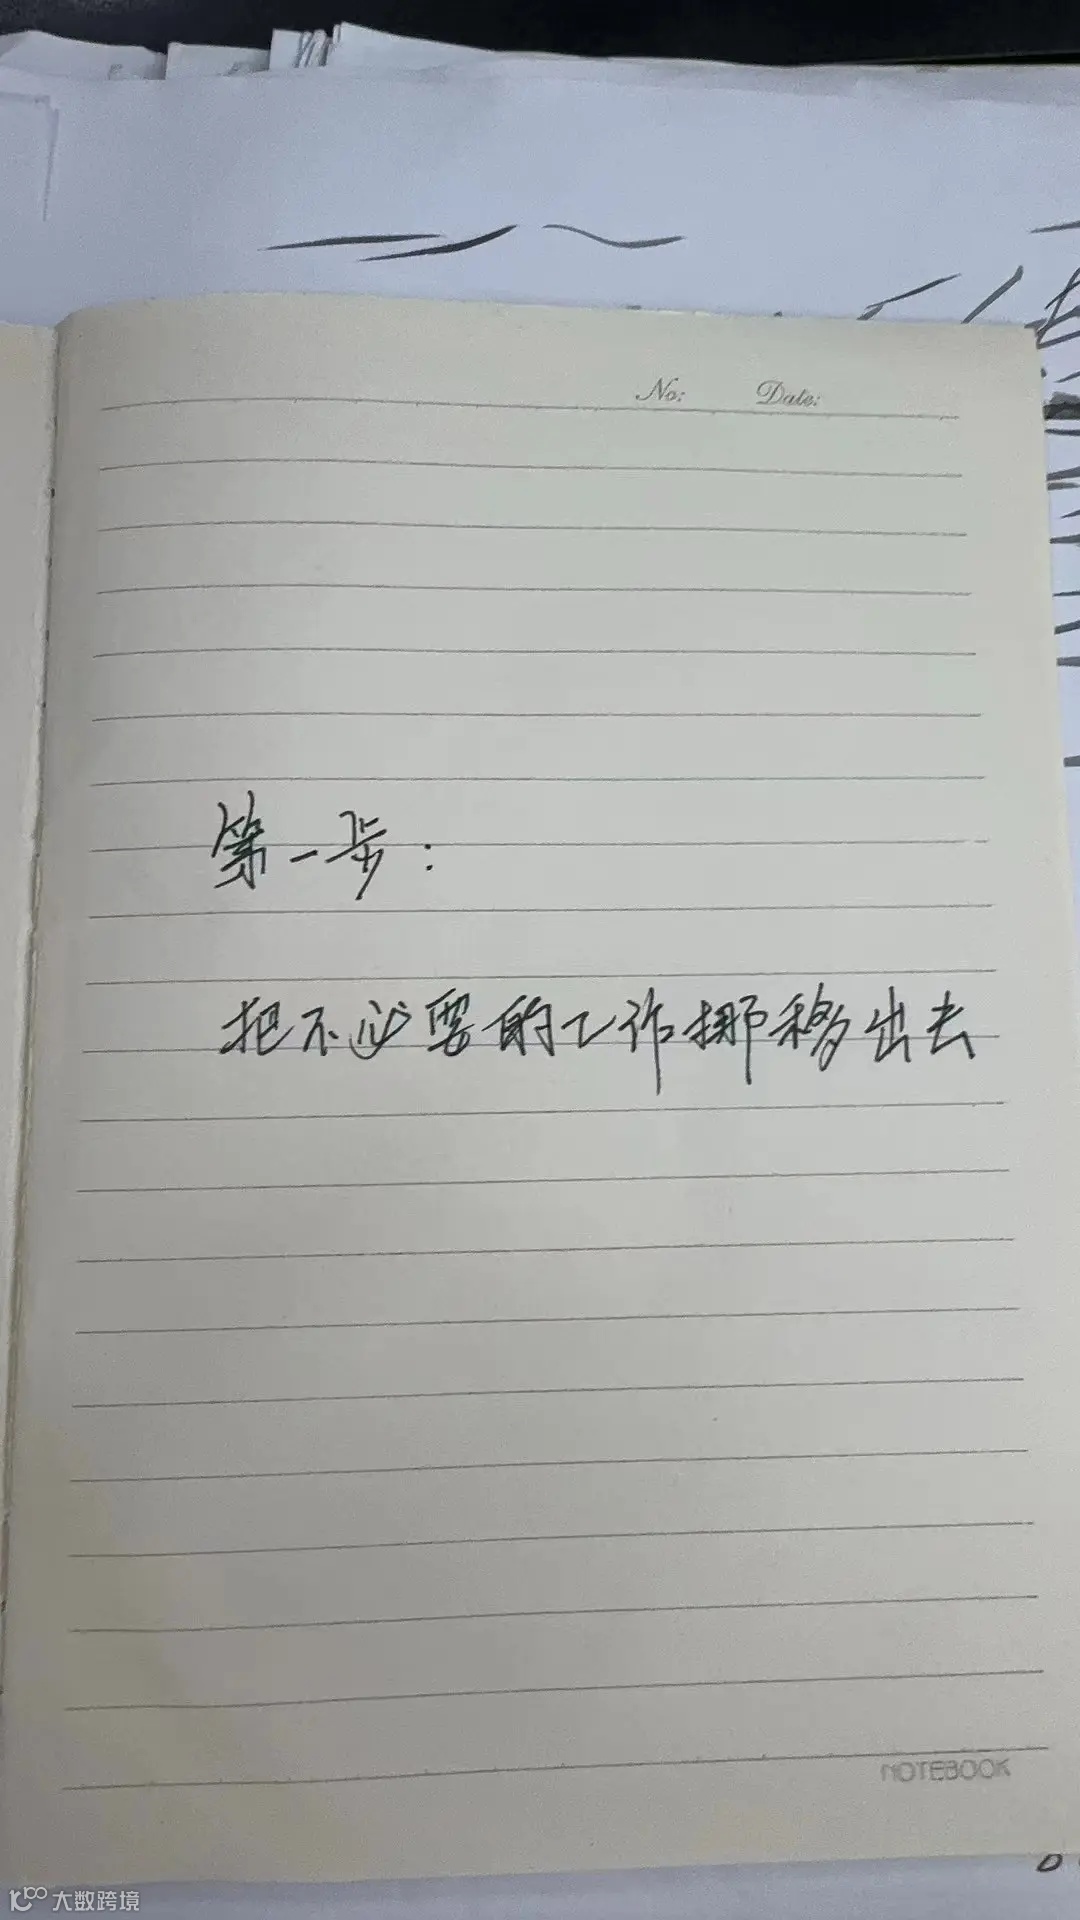 No: Date:
第一步：
把不必要的工作挪移出去
NOTEBOOK
大数跨境